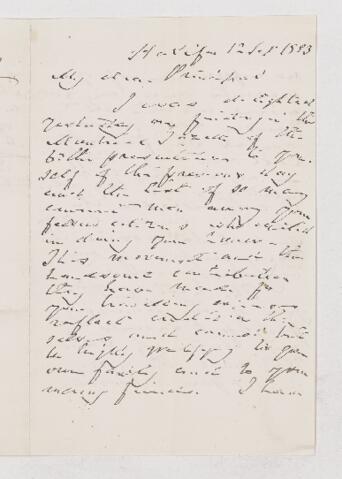 Halifax 12 Sep 1883
My dear Principal
I was delighted
yesterday on finding in the
Montreal Gazette of the
presentation to your
self of the previous day
and the list of so many
eminent men among your
fellow citizens who united
in doing you honor. The
This movement and the
handsome contribution
they have made for
your travelling expenses
reflect credit on them
selves and cannot but
be highly gratifying to you
own family and to your
many friends. I have